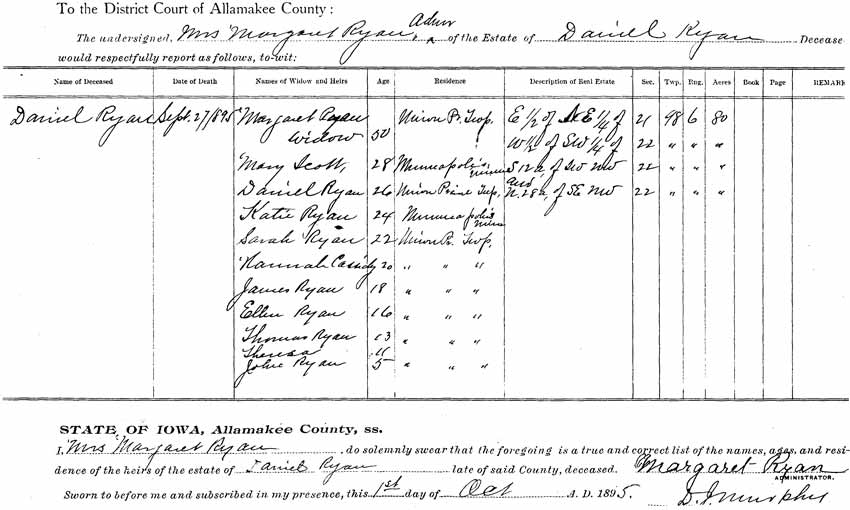 To the District Court of Allamakee County:
The undersigned, Mrs Margaret Ryan, Admr of the Estate of Daniel Ryan Decease
would respectfully report as follows, to-wit:
Name of Deceased Date of Death Names of Widow and Heirs Age Residence Description of Real Estate Sec. Twp. Rng. Acres Book Page REMARK
Daniel Ryan Sept. 27/895 Margaret Ryan Union Pr. Twp. E 1/2 of SE 1/4 of 21 98 6 80
Widow 50 W 1/2 of SW 1/4 of 22 " " "
Mary Scott, 28 Minneapolis Minn S 12 a of SW NW 22 " " "
Daniel Ryan 26 Union Prairie Twp, and N. 28 a, of SE NW 22 " " "
Katie Ryan 24 Minneapolis Minn
Sarah Ryan 22 Union Pr. Twp,
Hannah Cassidy 20 " " "
James Ryan 18 " " "
Ellen Ryan 16 " " "
Thomas Ryan 13 " " "
Theresa 11
John Ryan 5 " " "
STATE OF IOWA, Allamakee County, ss.
I, Mrs Margaret Ryan, do solemnly swear that the foregoing is a true and correct list of the names, ages, and resi-
dence of the heirs of the estate of Daniel Ryan late of said County, deceased. Margaret Ryan
ADMINISTRATOR.
Sworn to before me and subscribed in my presence, this 1st day of Oct A. D. 1895. D. J. Murphy